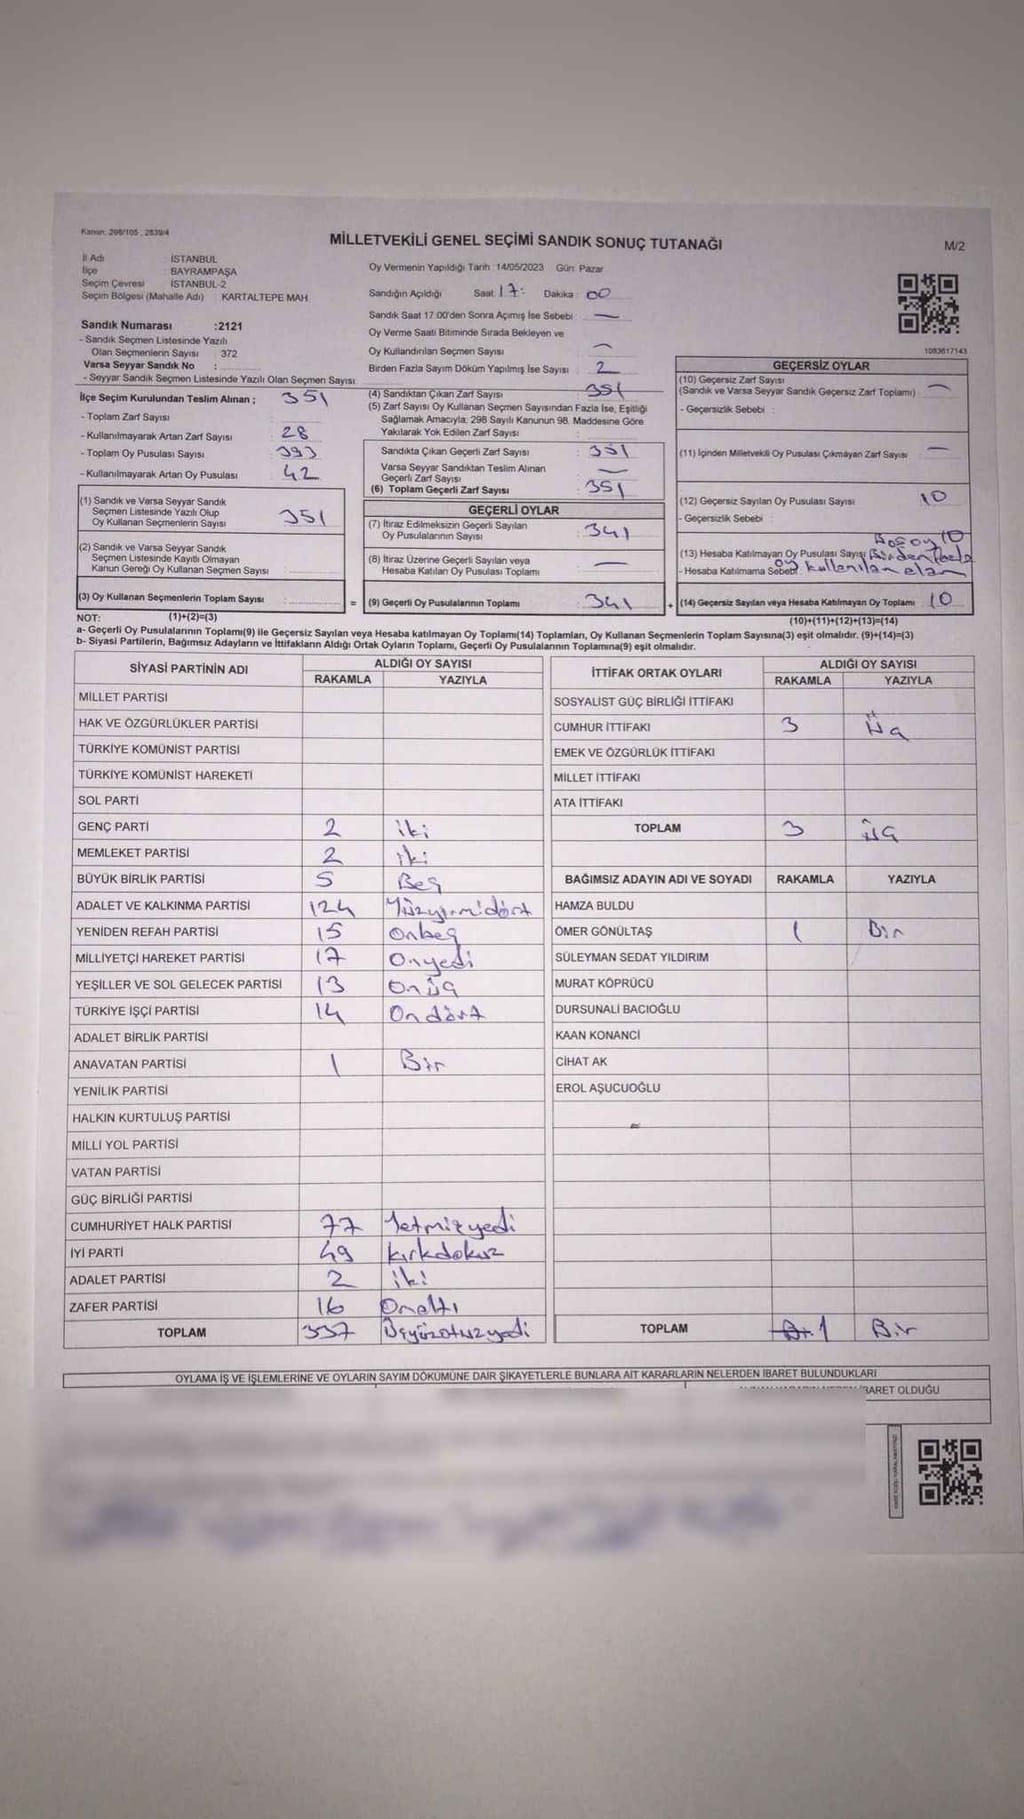 Kanun: 298/105, 2839/4
MİLLETVEKİLİ GENEL SEÇİMİ SANDIK SONUÇ TUTANAĞI
M/2
İl Adı İSTANBUL
İlçe BAYRAMPAŞA
Seçim Çevresi İSTANBUL-2
Seçim Bölgesi (Mahalle Adı) : KARTALTEPE MAH
Sandık Numarası :2121
- Sandık Seçmen Listesinde Yazılı
Olan Seçmenlerin Sayısı : 372
Varsa Seyyar Sandık No :
- Seyyar Sandık Seçmen Listesinde Yazılı Olan Seçmen Sayısı
İlçe Seçim Kurulundan Teslim Alınan ; 351
- Toplam Zarf Sayısı
- Kullanılmayarak Artan Zarf Sayısı 28
- Toplam Oy Pusulası Sayısı 393
- Kullanılmayarak Artan Oy Pusulası 42
(1) Sandık ve Varsa Seyyar Sandık
Seçmen Listesinde Yazılı Olup
Oy Kullanan Seçmenlerin Sayısı 351
(2) Sandık ve Varsa Seyyar Sandık
Seçmen Listesinde Kayıtlı Olmayan
Kanun Gereği Oy Kullanan Seçmen Sayısı
(3) Oy Kullanan Seçmenlerin Toplam Sayısı =
Oy Vermenin Yapıldığı Tarih : 14/05/2023 Gün: Pazar
Sandığın Açıldığı Saat 17: Dakika 00
Sandık Saat 17:00'den Sonra Açımış İse Sebebi : —
Oy Verme Saati Bitiminde Sırada Bekleyen ve
Oy Kullandırılan Seçmen Sayısı —
Birden Fazla Sayım Döküm Yapılmış İse Sayısı 2
(4) Sandıktan Çıkan Zarf Sayısı 351
(5) Zarf Sayısı Oy Kullanan Seçmen Sayısından Fazla İse, Eşitliği
Sağlamak Amacıyla; 298 Sayılı Kanunun 98. Maddesine Göre
Yakılarak Yok Edilen Zarf Sayısı :
Sandıkta Çıkan Geçerli Zarf Sayısı : 351
Varsa Seyyar Sandıktan Teslim Alınan
Geçerli Zarf Sayısı —
(6) Toplam Geçerli Zarf Sayısı : 351
GEÇERLİ OYLAR
(7) İtiraz Edilmeksizin Geçerli Sayılan
Oy Pusulalarının Sayısı : 341
(8) İtiraz Üzerine Geçerli Sayılan veya
Hesaba Katılan Oy Pusulası Toplamı —
(9) Geçerli Oy Pusulalarının Toplamı : 341 +
1083617143
GEÇERSİZ OYLAR
(10) Geçersiz Zarf Sayısı
(Sandık ve Varsa Seyyar Sandık Geçersiz Zarf Toplamı) —
- Geçersizlik Sebebi :
(11) İçinden Milletvekili Oy Pusulası Çıkmayan Zarf Sayısı —
(12) Geçersiz Sayılan Oy Pusulası Sayısı 10
- Geçersizlik Sebebi :
Boş oy 10
(13) Hesaba Katılmayan Oy Pusulası Sayısı Birden fazla
- Hesaba Katılmama Sebebi oy kullanılan
(14) Geçersiz Sayılan veya Hesaba Katılmayan Oy Toplamı 10
NOT: (1)+(2)=(3) (10)+(11)+(12)+(13)=(14)
a- Geçerli Oy Pusulalarının Toplamı(9) ile Geçersiz Sayılan veya Hesaba katılmayan Oy Toplamı(14) Toplamları, Oy Kullanan Seçmenlerin Toplam Sayısına(3) eşit olmalıdır. (9)+(14)=(3)
b- Siyasi Partilerin, Bağımsız Adayların ve İttifakların Aldığı Ortak Oyların Toplamı, Geçerli Oy Pusulalarının Toplamına(9) eşit olmalıdır.
SİYASİ PARTİNİN ADI ALDIĞI OY SAYISI
RAKAMLA YAZIYLA
MİLLET PARTİSİ
HAK VE ÖZGÜRLÜKLER PARTİSİ
TÜRKİYE KOMÜNİST PARTİSİ
TÜRKİYE KOMÜNİST HAREKETİ
SOL PARTİ
GENÇ PARTİ 2 iki
MEMLEKET PARTİSİ 2 iki
BÜYÜK BİRLİK PARTİSİ 5 Beş
ADALET VE KALKINMA PARTİSİ 124 Yüzyirmidört
YENİDEN REFAH PARTİSİ 15 Onbeş
MİLLİYETÇİ HAREKET PARTİSİ 17 Onyedi
YEŞİLLER VE SOL GELECEK PARTİSİ 13 Onüç
TÜRKİYE İŞÇİ PARTİSİ 14 Ondört
ADALET BİRLİK PARTİSİ
ANAVATAN PARTİSİ 1 Bir
YENİLİK PARTİSİ
HALKIN KURTULUŞ PARTİSİ
MİLLİ YOL PARTİSİ
VATAN PARTİSİ
GÜÇ BİRLİĞİ PARTİSİ
CUMHURİYET HALK PARTİSİ 77 Yetmişyedi
İYİ PARTİ 49 kırkdokuz
ADALET PARTİSİ 2 iki
ZAFER PARTİSİ 16 Onaltı
TOPLAM 337 Üçyüzotuzyedi
İTTİFAK ORTAK OYLARI ALDIĞI OY SAYISI
RAKAMLA YAZIYLA
SOSYALİST GÜÇ BİRLİĞİ İTTİFAKI
CUMHUR İTTİFAKI 3 Üç
EMEK VE ÖZGÜRLÜK İTTİFAKI
MİLLET İTTİFAKI
ATA İTTİFAKI
TOPLAM 3 üç
BAĞIMSIZ ADAYIN ADI VE SOYADI RAKAMLA YAZIYLA
HAMZA BULDU
ÖMER GÖNÜLTAŞ 1 Bir
SÜLEYMAN SEDAT YILDIRIM
MURAT KÖPRÜCÜ
DURSUNALİ BACIOĞLU
KAAN KONANCİ
CİHAT AK
EROL AŞUCUOĞLU
TOPLAM 1 Bir
OYLAMA İŞ VE İŞLEMLERİNE VE OYLARIN SAYIM DÖKÜMÜNE DAİR ŞİKAYETLERLE BUNLARA AİT KARARLARIN NELERDEN İBARET BULUNDUKLARI
İBARET OLDUĞU